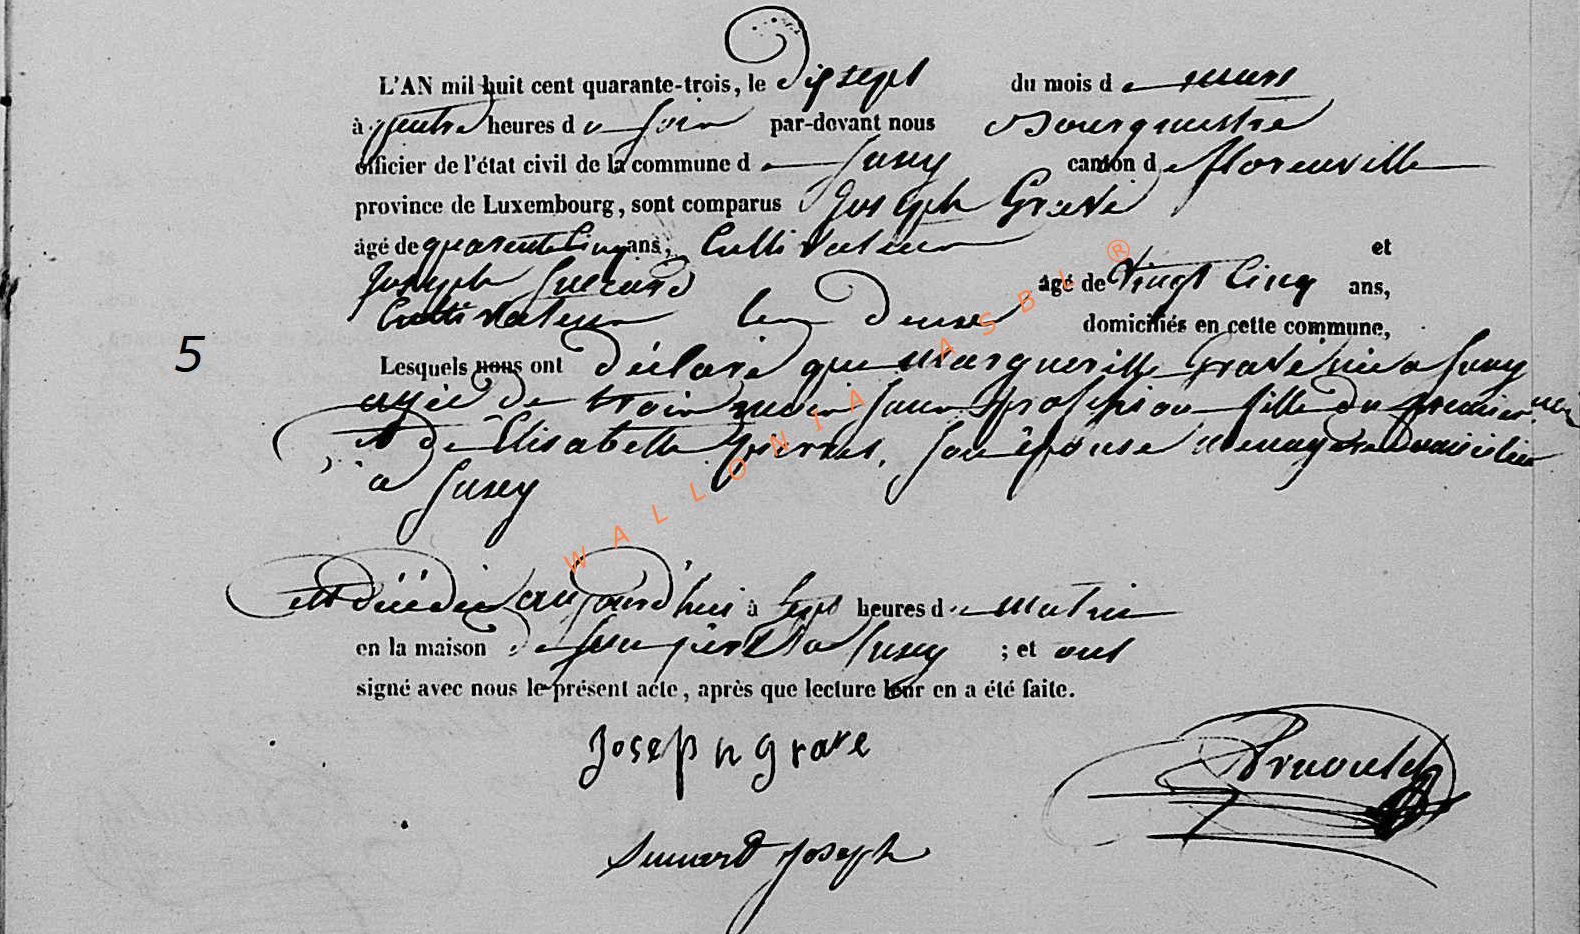 L'AN mil huit cent quarante-trois, le dix sept du mois de mars
à quatre heures du soir par-devant nous Bourguestre
officier de l'état civil de la commune de Susey canton de florenville
province de Luxembourg, sont comparus Joseph Gravé
âgé de quarente Cinq ans, Cultivateur et
Joseph âgé de Vingt Cinq ans,
Cultivateur les Deux domiciliés en cette commune,
5
Lesquels nous ont déclaré que Marguerille Gravé née a Susey
agée de trois mois sans profession fille du premier
et de Élisabette son épouse menagere domicilié
à Susey
est décédée aujourd'hui à Sept heures du matin
en la maison de son père a Susey ; et ont
signé avec nous le présent acte, après que lecture leur en a été faite.
Joseph grave
Arnould
Joseph
WALLONIA ASBL ®